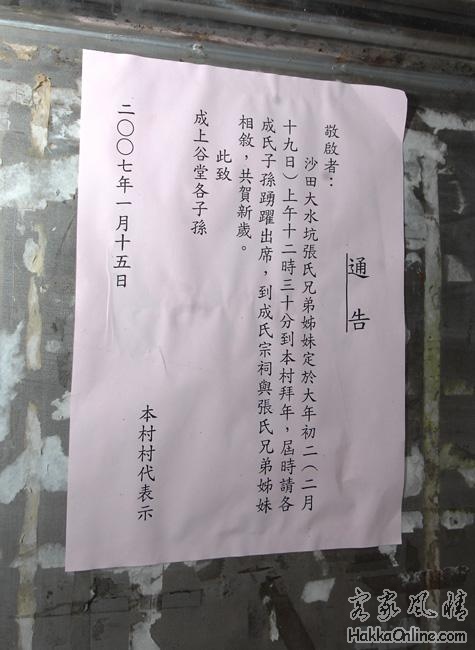 通告
敬啟者：
沙田大水坑張氏兄弟姊妹定於大年初二（二月
十九日）上午十二時三十分到本村拜年，屆時請各
成氏子孫踴躍出席，到成氏宗祠與張氏兄弟姊妹
相敘，共賀新歲。
此致
成上谷堂各子孫
本村村代表示
二〇〇七年一月十五日
客家風情
HakkaOnline.com